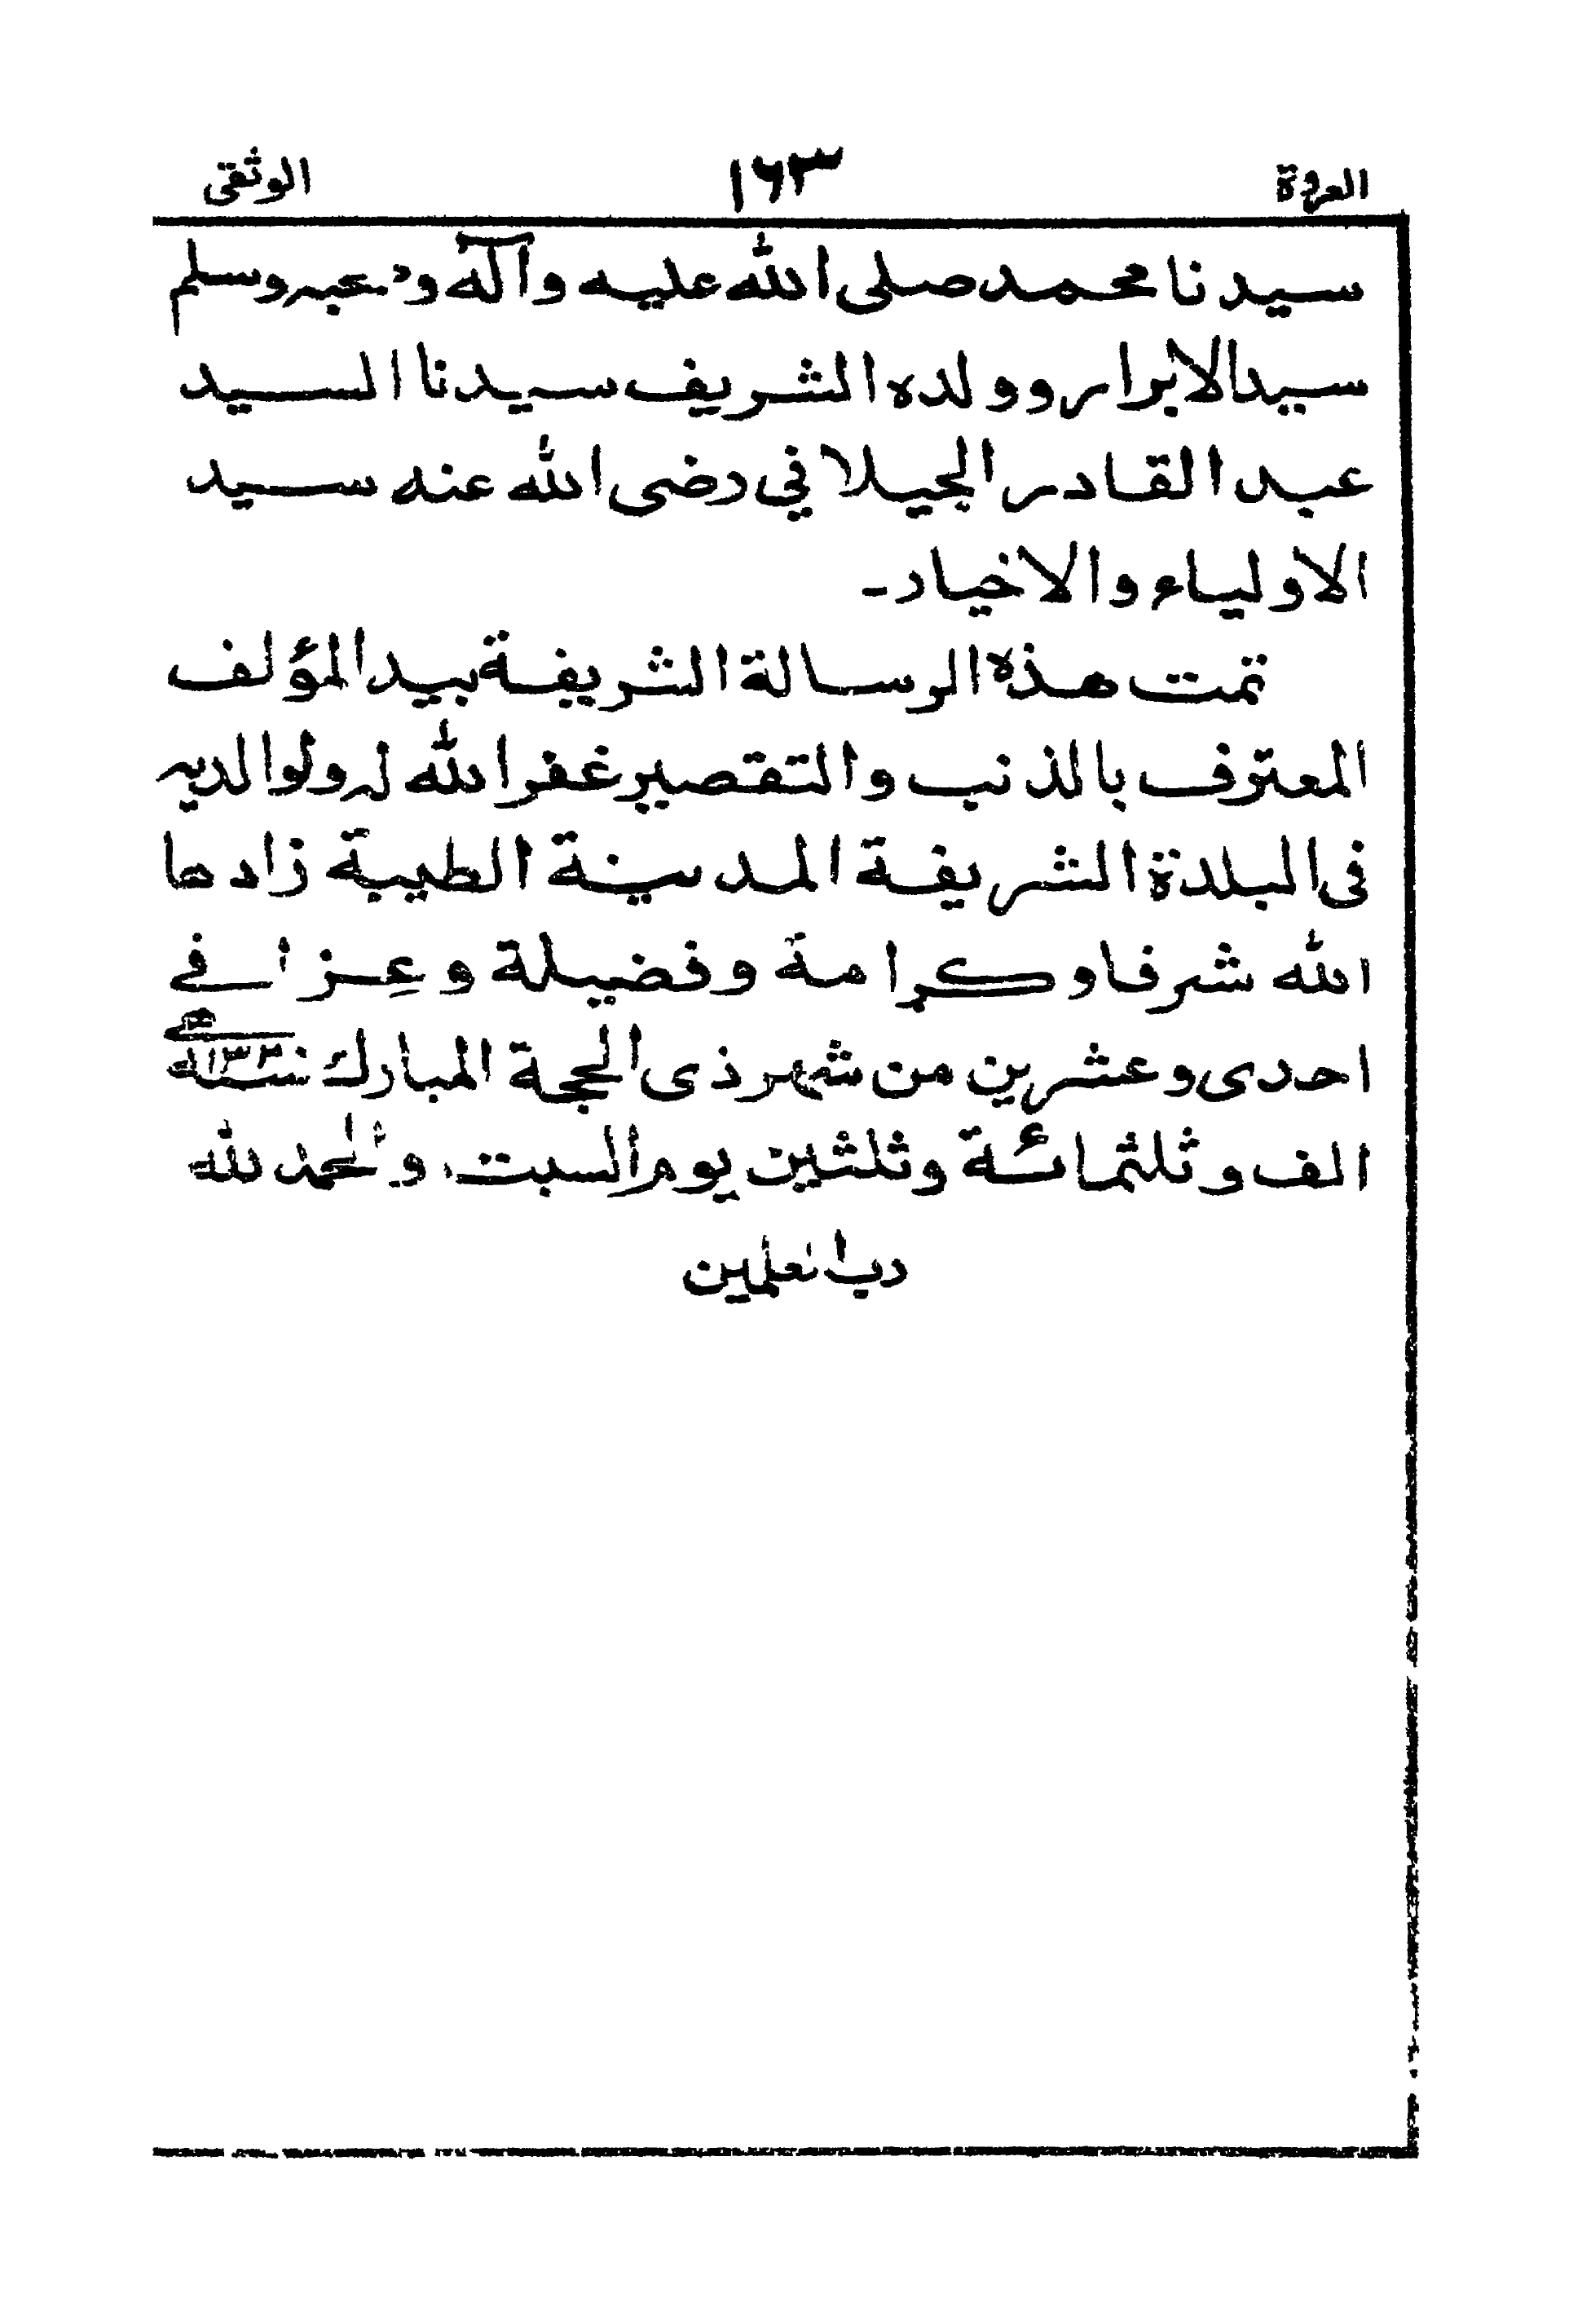 العروة ١٦٣ الوثقى
سيدنا محمد صلى الله عليه وآله وصحبه وسلم
سيد الابرار وولده الشريف سيدنا السيد
عبد القادر الجيلاني رضى الله عنه سيد
الاولياء والاخيار۔
تمت هذه الرسالة الشريفة بيد المؤلف
المعترف بالذنب والتقصير غفر الله له ولوالديه
فى البلدة الشريفة المدينة الطيبة زادها
الله شرفا وكرامة وفضيلة وعزا في
احدى وعشرين من شهر ذى الحجة المبارك
الف وثلثمائة وثلثين يوم السبت، والحمد لله
رب العلمين